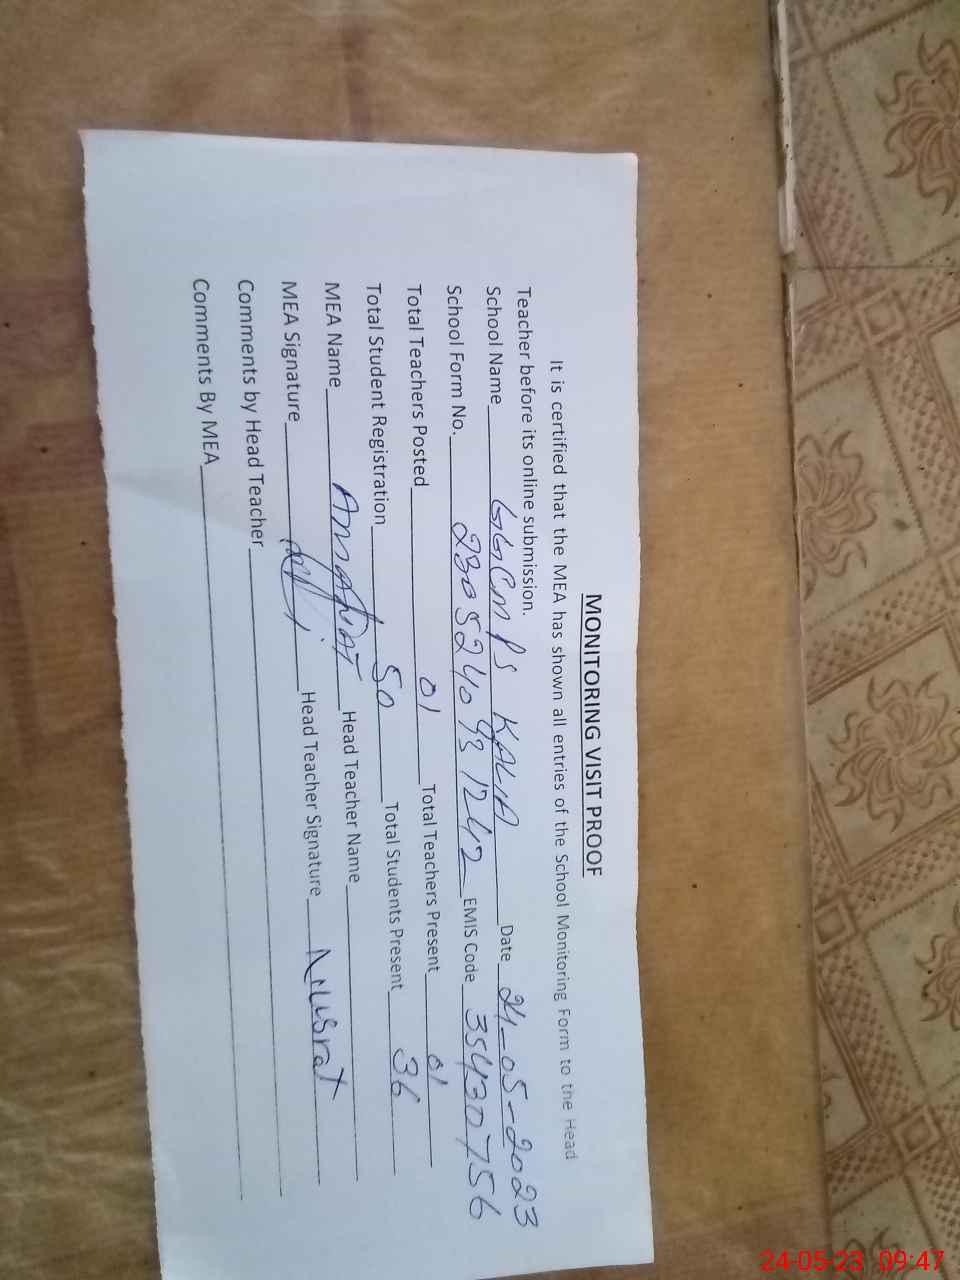 MONITORING VISIT PROOF
It is certified that the MEA has shown all entries of the School Monitoring Form to the Head
Teacher before its online submission.
School Name GGCMPS KALIA Date 24-05-2023
School Form No. 2305240931242 EMIS Code 35430756
Total Teachers Posted 01 Total Teachers Present 01
Total Student Registration 50 Total Students Present 36
MEA Name Head Teacher Name
MEA Signature Head Teacher Signature Nusrat
Comments by Head Teacher
Comments By MEA
24-05-23 09:47